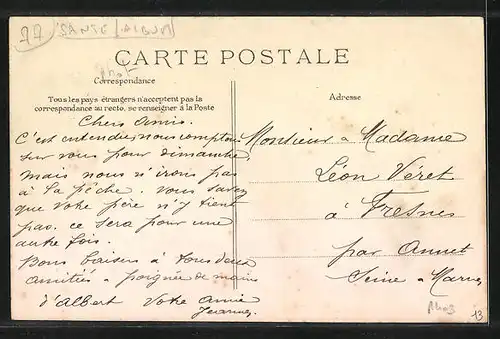 77 SANTÉ ALBUM
CARTE POSTALE
Correspondance
Tous les pays étrangers n'acceptent pas la
correspondance au recto, se renseigner à la Poste
Adresse
Chers Amis.
C'est entendu, nous comptons
sur vous pour dimanche
mais nous n'irons pas
à la pêche. Vous savez
que votre père n'y tient
pas. ce sera pour une
autre fois.
Bons baisers à tous deux
amitiés & poignée de mains
d'Albert Votre Amie
Jeanne
Monsieur & Madame
Léon Veret
à Fresnes
par Annet
Seine & Marne
13